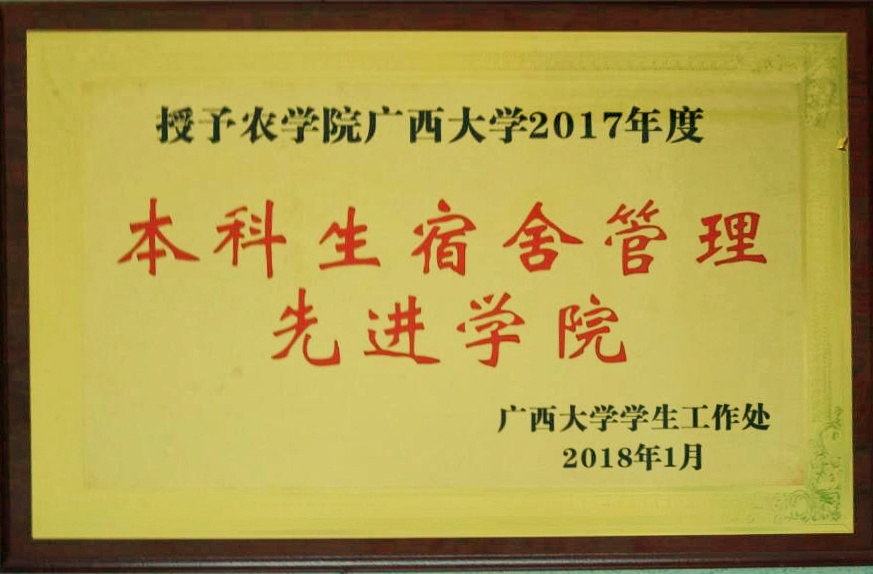 授予农学院广西大学2017年度
本科生宿舍管理
先进学院
广西大学学生工作处
2018年1月